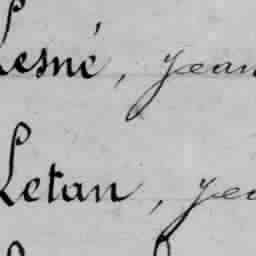 Lesné, jean
Letan, jea